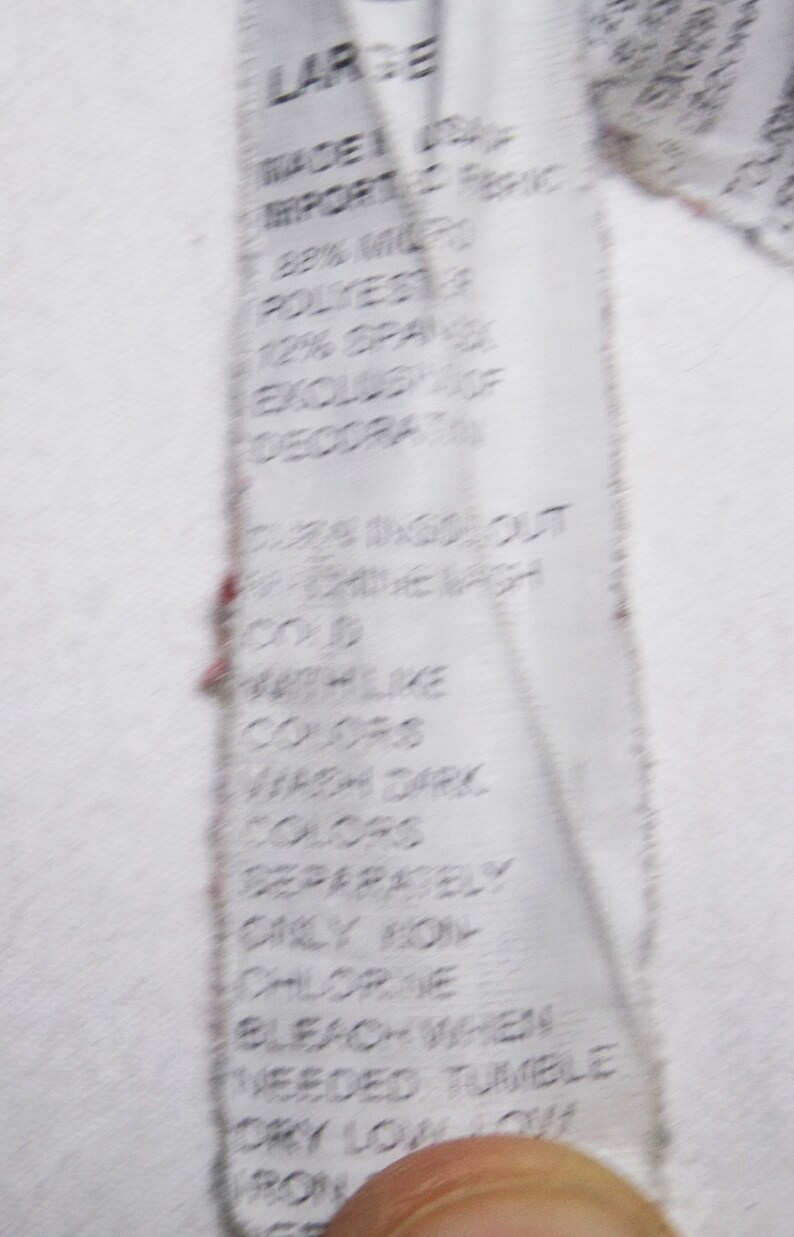 LARGE
MADE IN USA OF
IMPORTED FABRIC
88% MICRO
POLYESTER
12% SPANDEX
EXCLUSIVE OF
DECORATION
TURN INSIDE OUT
MACHINE WASH
COLD
WITH LIKE
COLORS
WASH DARK
COLORS
SEPARATELY
ONLY NON-
CHLORINE
BLEACH WHEN
NEEDED TUMBLE
DRY LOW LOW
IRON